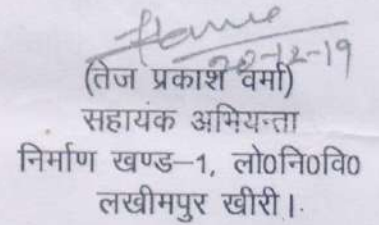 20-12-19
(तेज प्रकाश वर्मा)
सहायक अभियन्ता
निर्माण खण्ड–1, लो0नि0वि0
लखीमपुर खीरी।